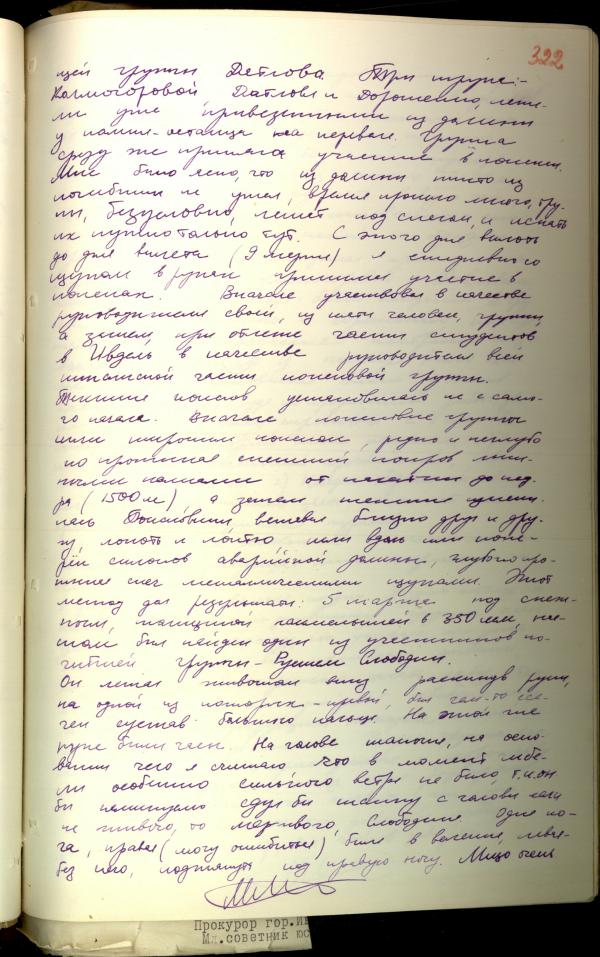 322
щей группы Дятлова Три трупа:-
Колмогоровой Дятлова и Дорошенко, лежа-
ли уже привезенными из долины
у камня-останца на перевале. Группа
сразу же приняла участие в поисках.
Мне было ясно, что из долины никто из
погибших не ушел, время прошло много, тру-
пы, безусловно, лежат под снегом, и искать
их нужно только тут. С этого дня вплоть
до дня вылета (9 марта) я ежедневно со
щупом в руках принимал участие в
поисках. Вначале участвовал в качестве
руководителя своей, из пяти человек, группы,
а затем, при отлете части студентов
в Ивдель в качестве руководителя всей
штатской части поисковой группы.
поисков установилась не с само-
го начала. Вначале поисковые группы
шли широким поиском, редко и неглубо
ко протыкая снежный покров лыж-
ными палками от палатки до кед-
ра (1500 м) а затем
Поисковики, вставая близко друг к дру-
гу локоть к локтю шли вдоль или попе-
рек склонов аварийной долины, глубоко про-
тыкая снег металлическими щупами. Этот
метод дал результаты: 5 марта под снеж-
ной, толщиной в 350 мм,
был найден один из участников по-
гибшей группы - Рустем Слободин.
Он лежал животом вниз раскинув руки,
на одной из которых - правой, был чем-то
сустав большого пальца. На этой же
руке были часы. На голове шапочка, на осно-
вании чего я считаю что в момент гибе-
ли особенно сильного ветра не было, т.к. он
бы неминуемо сдул бы шапку с головы если
не живого, то мертвого, Слободина. Одна но-
га, правая (могу ошибиться) была в валенке, левая
без него, подтянута под правую ногу. Лицо очень
Прокурор гор.
Мл.советник юс